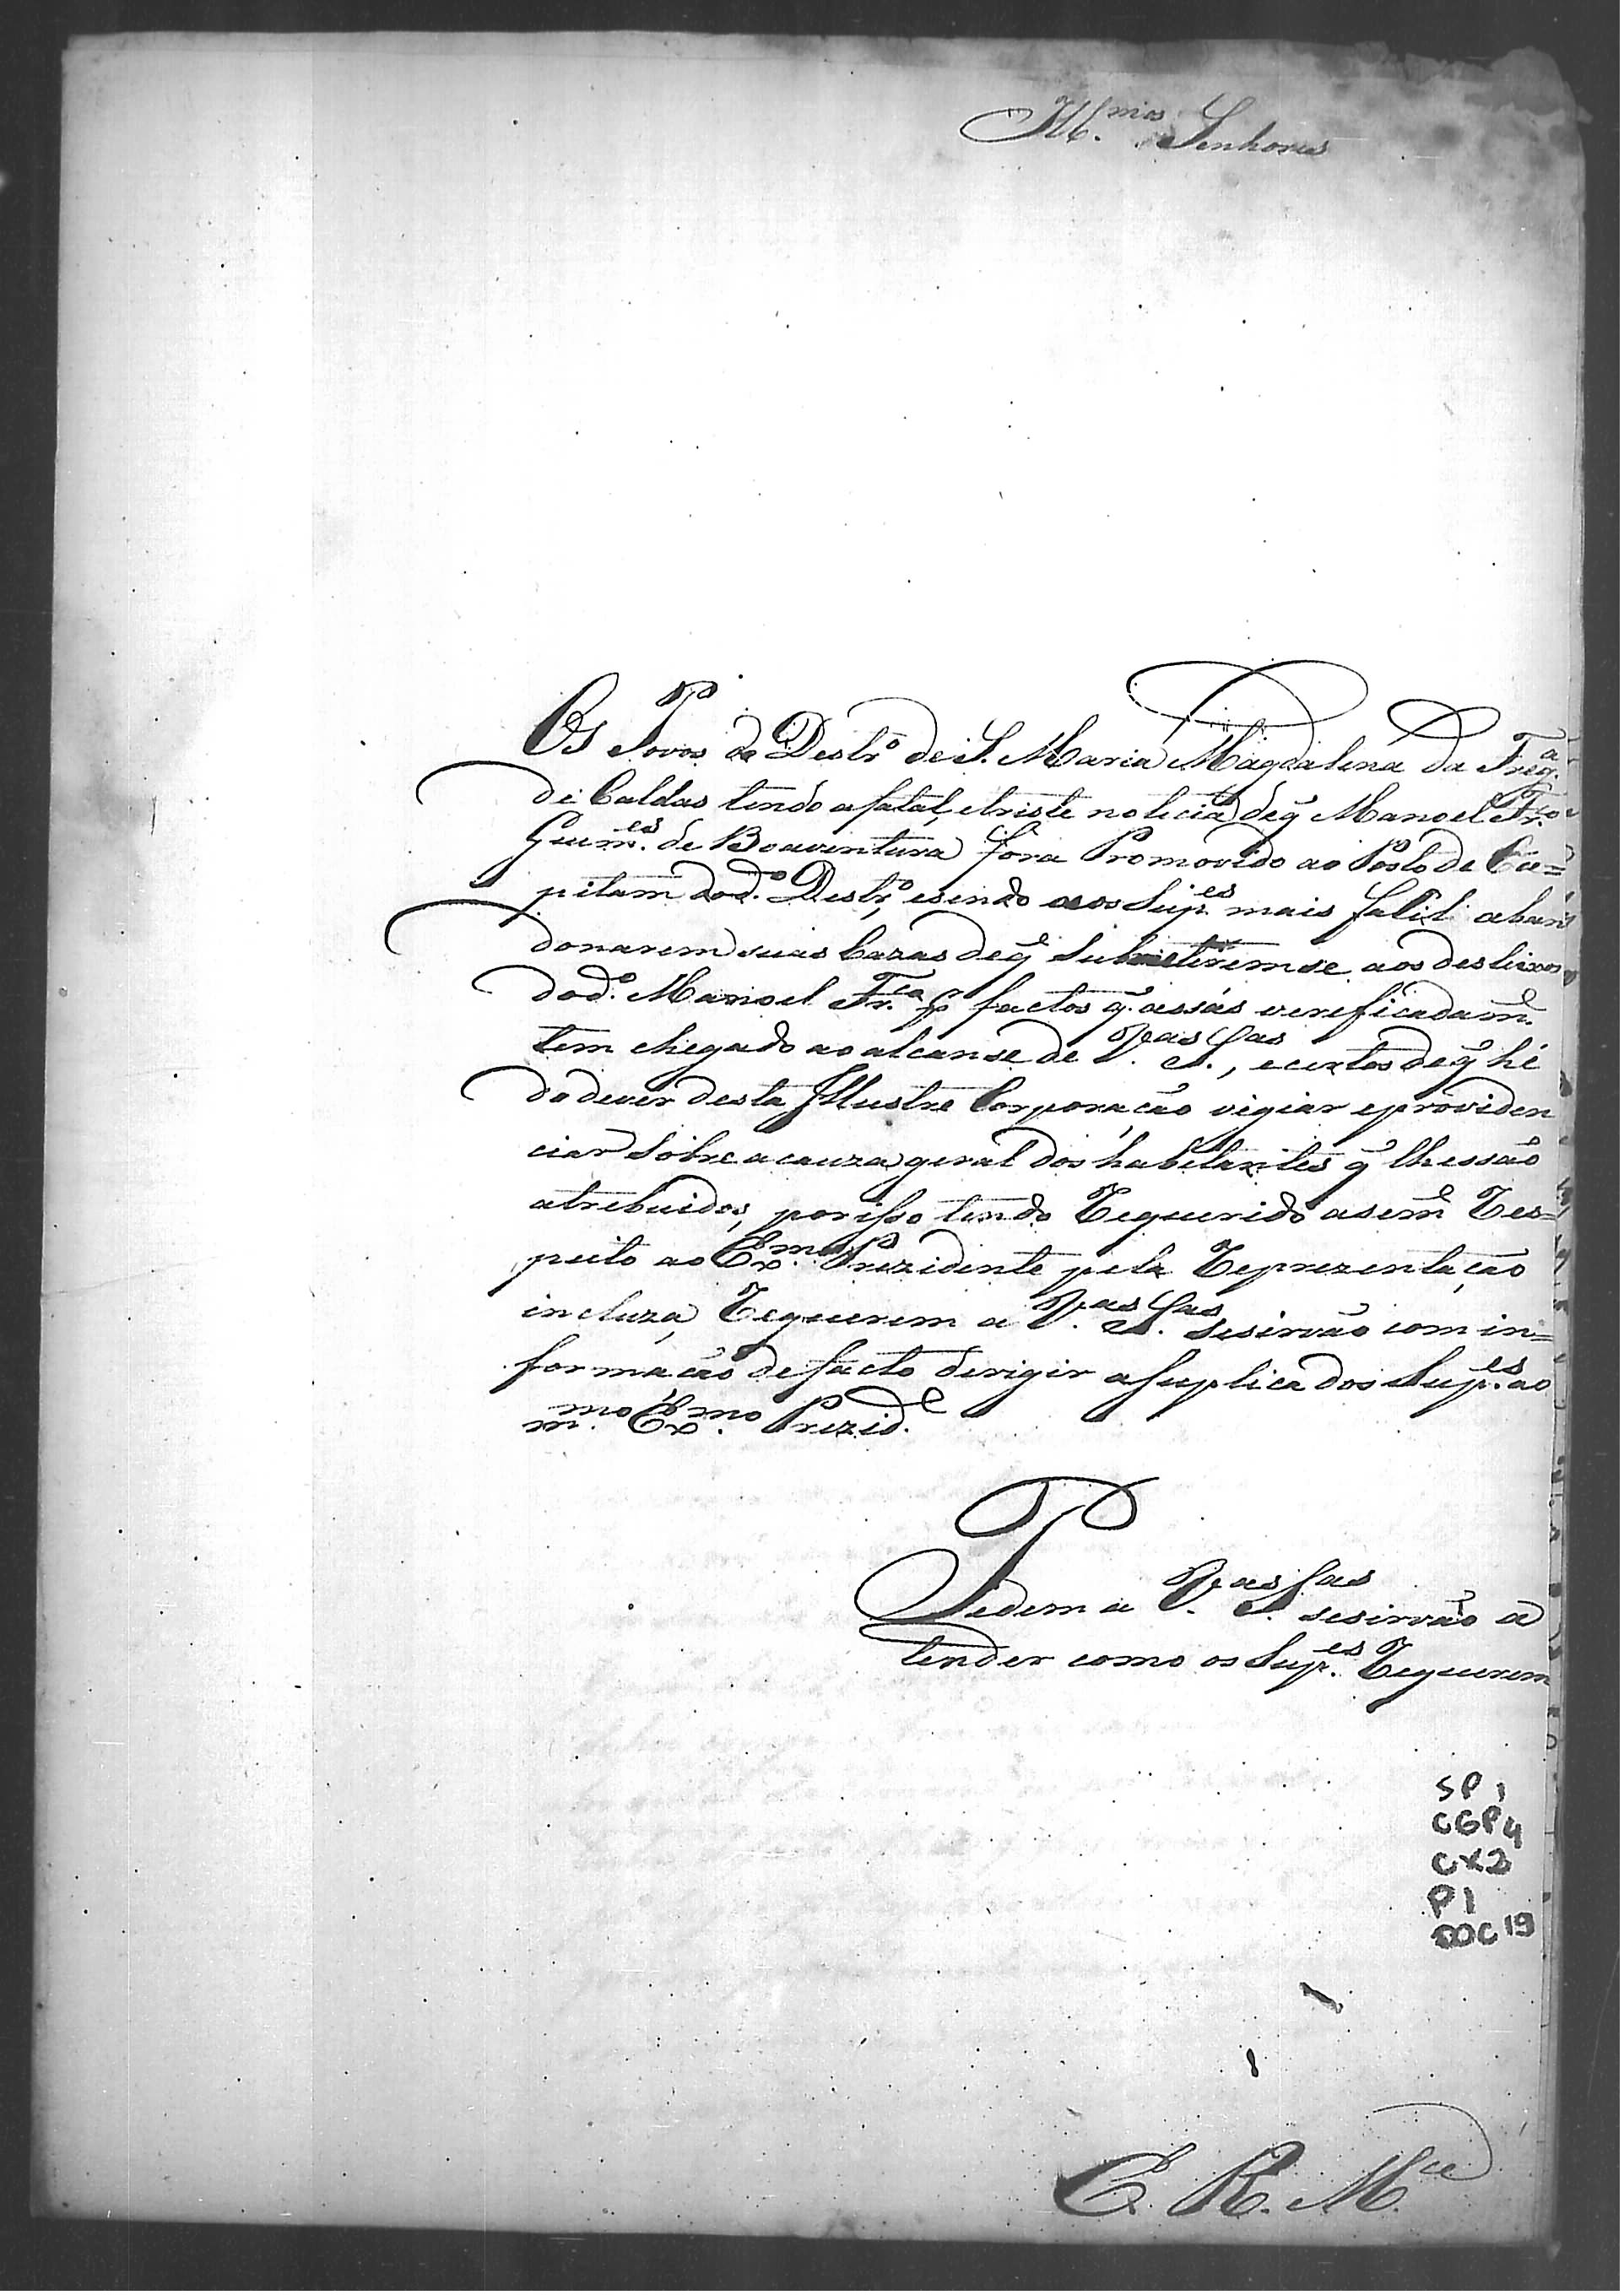 Ill.mos Senhores
Os Povos do Destr.o de S. Maria Magdalena da Freg.a
de Caldas tendo a fatal, e triste noticia de q̃ Manoel Fr.co
Guim.es de Boaventura fora Promovido ao Posto de Ca=
pitam do d.o Destr.o, e sendo aos Sup.es mais facil aban
donarem suas Cazas de q̃ submeteremse aos desleixos
do d.o Manoel Fr.co p.r factos q̃ assás verificadam.e
tem chegado ao alcanse de V.as S.as, e certos de q̃ hé
do dever desta Illustre Corporação vigiar e providen
ciar sobre a cauza geral dos habetantes q̃ lhes são
atrebuidos, por isso tendo Requerido a sem.e Res=
peito ao Ex.mo Prezidente pela Reprezentação
incluza, Requerem a V.as S.as se sirvão com in=
formação de facto derigir a suplica dos Sup.es ao
m.mo Ex.mo Prezid.e
Pedem a V.as S.as se sirvão a
tender como os Sup.es Requerem
SP 1
CGP 4
CX2
P1
DOC 19
E. R. M.ce